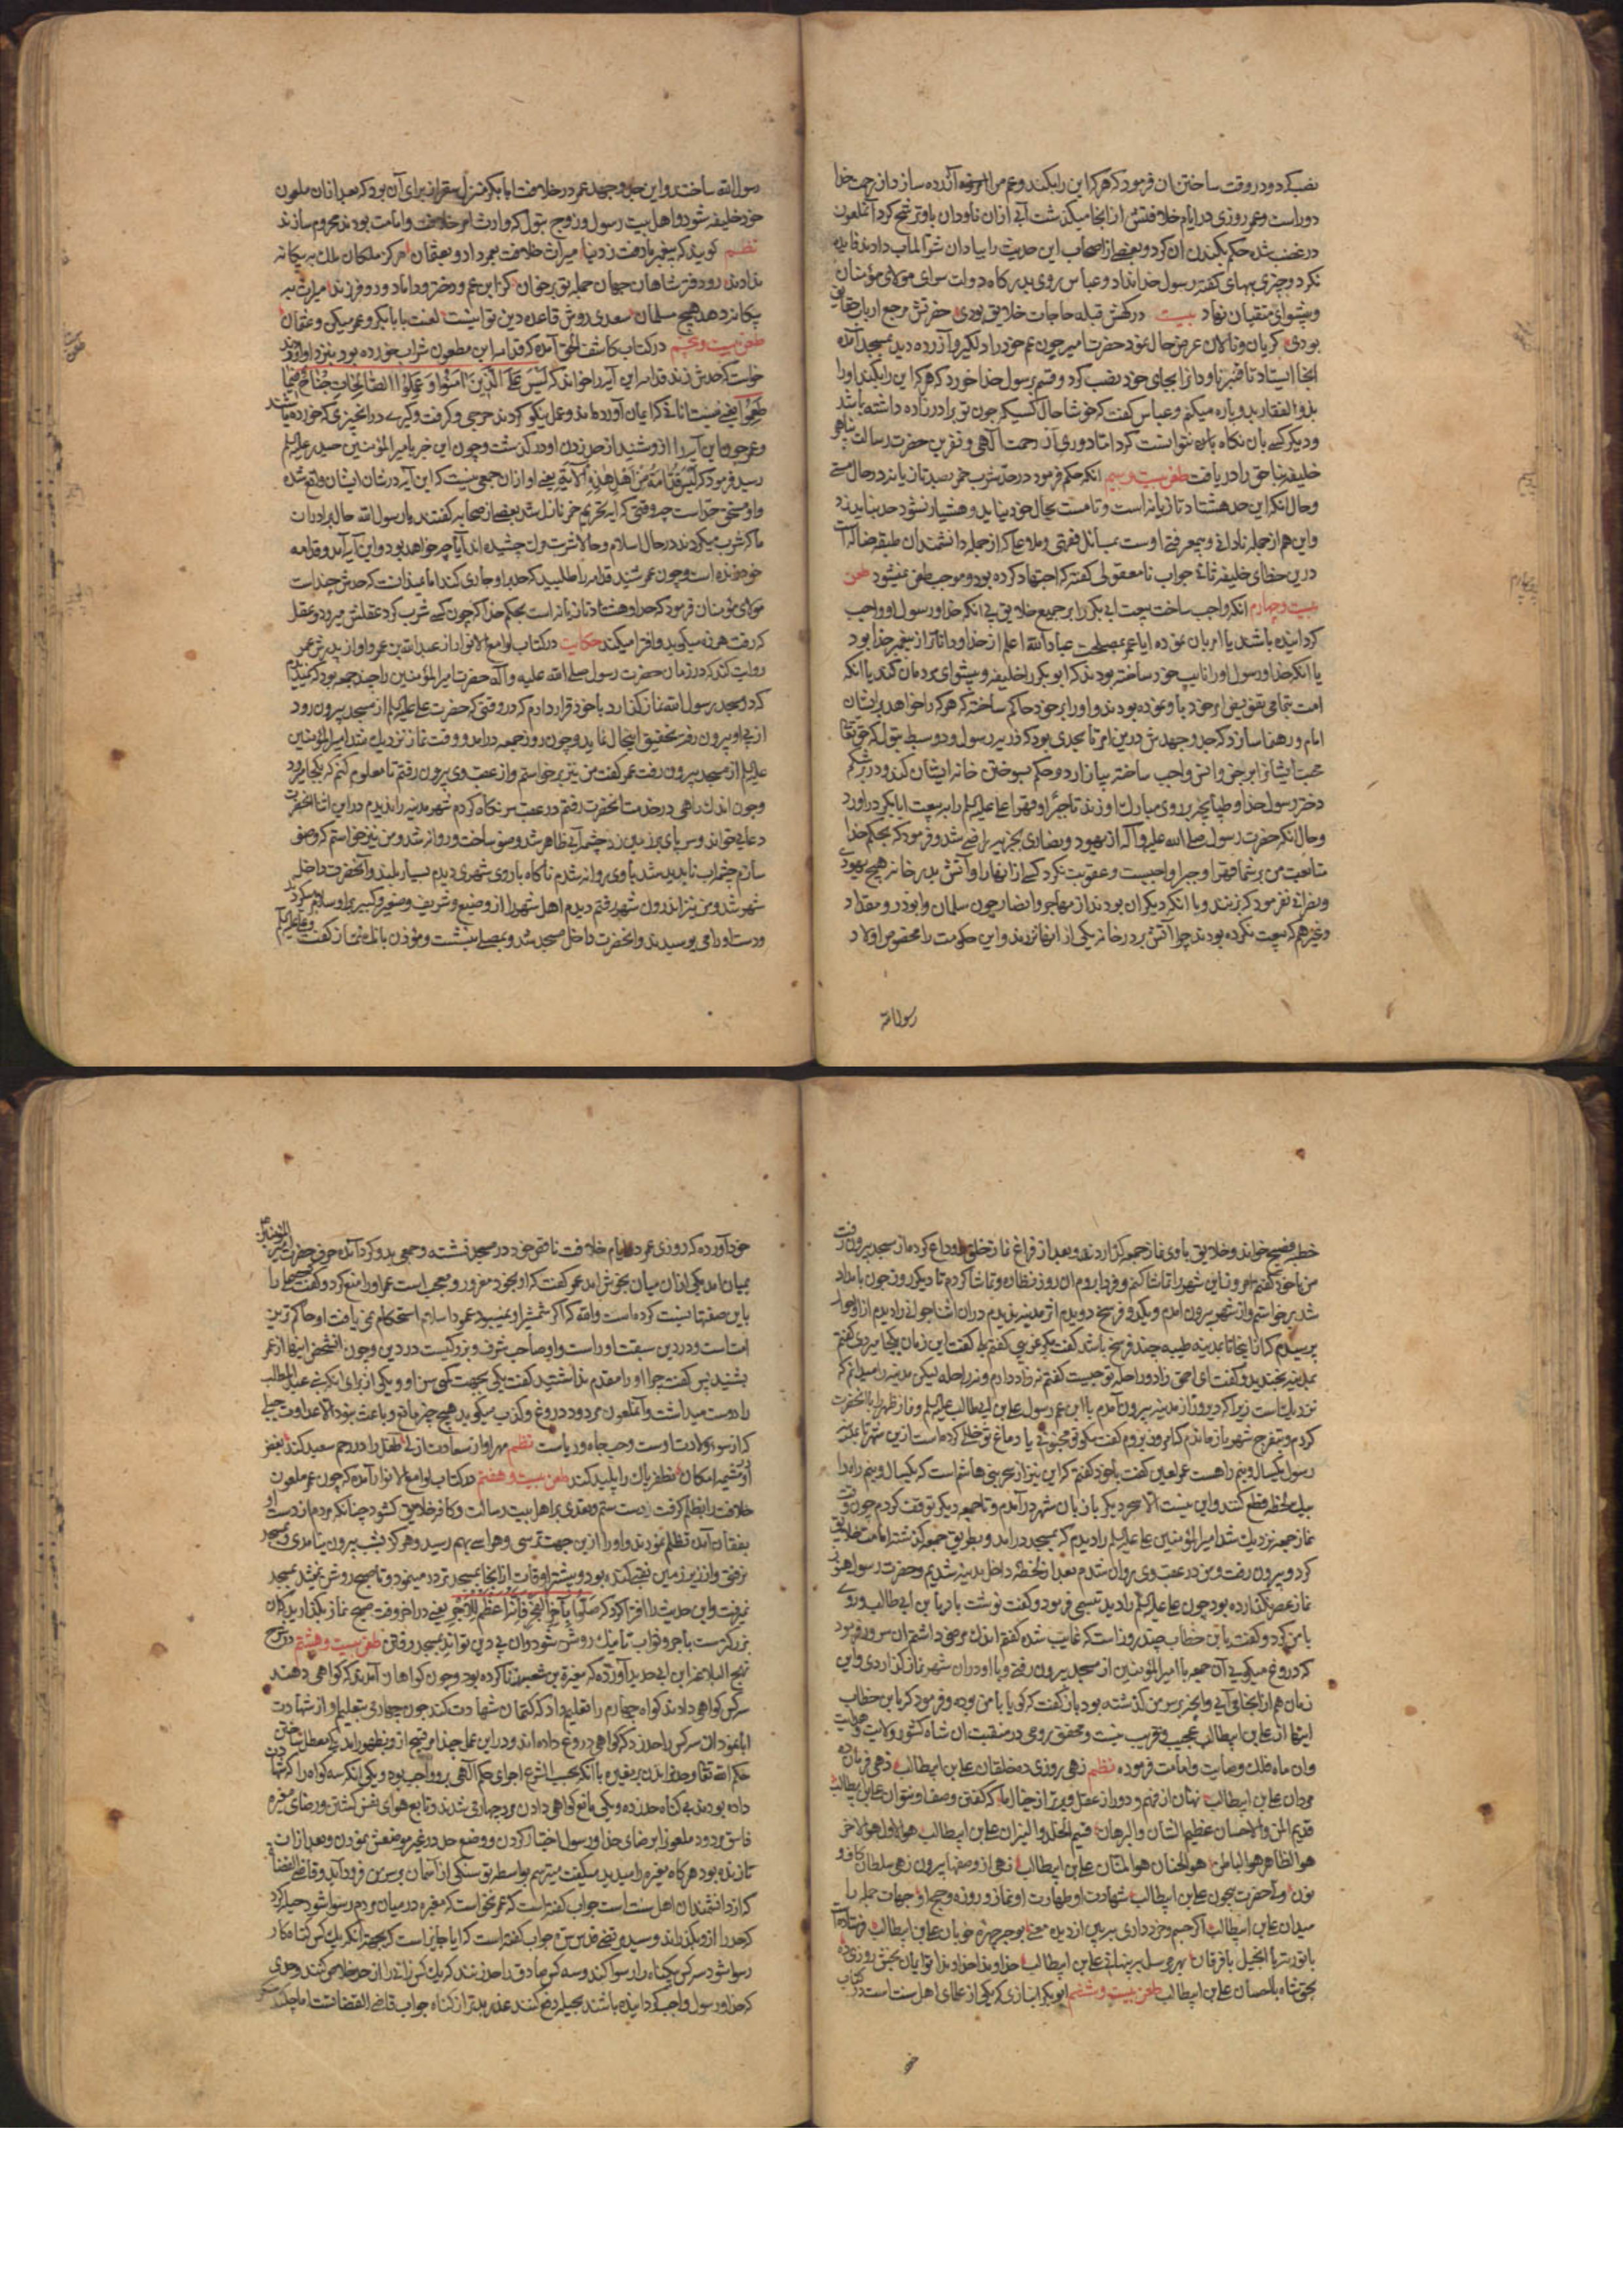 نصب کرد و در وقت ساختن آن فرمود که هر که این را بکند و عم مرا آزرده سازد از رحمت خدا
دور است و عمر روزی در ایام خلافتش از انجا میکذشت آبی ازان ناودان باو ترشح کرد آنملعون
در غضب شده حکم بکندن ان کرد و بعضی از اصحاب این حدیث را بیاد ان دادند فایده
نکرد و چیزی بهای کفته رسول خدا نداد و عباس روی بدرکاه دولت سرای مولای مؤمنان
و پیشوای متقیان نهاد بیت درکهش قبله حاجات خلایق بودی حضرتش مرجع ارباب حقایق
بودی کریان و نالان عرض حال نمود حضرت امیر چون عم خود را دلکیر و آزرده دید بمسجد آمده
انجا ایستاد تا قنبر ناودانرا بجای خود نصب کرد و قسم برسول خدا خورد که هر که این را بکند او را
بذو الفقار بدو پاره میکنم و عباس کفت که خوشا حال کسیکه چون تو برادرزاده داشته باشد
و دیکر کسی بان نکاه نتوانست کرد اما دوری از رحمت آلهی و نفرین حضرت رسالت پناهی
خلیفه بناحق را دریافت طعن بیست و سیم انکه حکم فرمود در حد شرب خمر بصد تازیانه در حال مستی
و حال انکه این حد هشتاد تازیانه است و تا مست بحال خود نیاید و هشیار نشود حد نباید زد
و این هم از جمله نادانی و بیمعرفتی اوست بمسائل فقهی و ملا که از جمله دانشمندان طبقه ضاله است
درین خطای خلیفه ثانی جواب نامعقولی کفته که اجتهاد کرده بود و موجب طعن نمیشود طعن
بیست و چهارم انکه واجب ساخت بیعت ابی بکر را بر جمیع خلایق بی انکه خدا و رسول او واجب
کردانیده باشند یا امر بان نموده ایا عمر بمصلحت عباد الله اعلم از خدا و داناتر از پیغمبر خدا بود
یا انکه خدا و رسول او را نایب خود ساخته بودند که ابوبکر را خلیفه و پیشوای مردمان کند یا انکه
امت بتمامی تفویض امر خود باو نموده بودند و او را بر خود حاکم ساخته که هر که را خواهد بر ایشان
امام و رهنما سازد که جد و جهدش درین امر تا بحدی بود که ذریه رسول و دو سبط بتول که حق تعالی
محبت ایشانرا بر جن و انس واجب ساخته بیازارد و حکم بسوختن خانه ایشان کند و در بر شکم
دختر رسول خدا و طپانچه بر روی مبارک او زند تا جبرا و قهرا علی علیه السلم را به بیعت ابابکر دراورد
و حال انکه حضرت رسول صلی الله علیه و آله از یهود و نصاری بجزیه راضی شد و فرمود که بحکم خدا
متابعت من بر شما قهرا و جبرا واجبست و عقوبت نکرد کسی از انها را و آتش بدر خانه هیچ یهودی
و نصرانی نفرمود که بزنند و با انکه دیکران بودند از مهاجر و انصار چون سلمان و ابوذر و مقداد
و غیرهم که بیعت نکرده بودند چرا آتش بر در خانه یکی از انها نزدند و این حکومت را مخصوص اولاد
رسول الله
رسول الله ساختند و این جد و جهد عمر در خلافت ابابکر برای آن بود که بعد ازان ملعون
خود خلیفه شود و اهل بیت رسول و زوج بتول که وارث امر خلافت و امامت بودند محروم سازند
نظم کویند که پیغمبر ما رفت ز دنیا میراث خلافت بعمر داد و بعثمان هرکز ملکان ملک به بیکانه
ندادند رو دفتر شاهان جهان جمله تو بر خوان کر ابن عم و دختر و داماد و دو فرزند میراث به
بیکانه دهد هیچ مسلمان سعدی روش قاعده دین تو اینست لعنت بابابکر و عمر میکن و عثمان
طعن بیست و پنجم در کتاب کاشف الحق آمده که قدامه ابن مظعون شراب خورده بود بنزد او اوردند
خواست که حدش زند قدامه این آیه را خواند که لَیْسَ عَلَی الَّذِینَ اٰمَنُوا وَ عَمِلُوا الصَّالِحَاتِ جُنَاحٌ فِیمَا
طَعِمُوا یعنی نیست انانی که ایمان آورده اند و عمل نیکو کردند حرجی و کرفت و کیری در انچیزی که خورده باشند
و عمر چون این آیه را ازو شنید از حد زدن او درکذشت و چون این خبر بامیر المؤمنین حیدر علیه السلم
رسید فرمود که لَیْسَ قُدَامَةُ مِنْ اَهْلِ هٰذِهِ الْآیَةِ یعنی او ازان جمعی نیست که این آیه در شان ایشان واقع شده
و او مستحق حد است چه وقتی که ایه تحریم خمر نازل شد بعضی از صحابه کفتند یا رسول الله حال برادران
ما که شرب میکردند در حال اسلام و حالا شربت مرک چشیده اند آیا چه خواهد بود و این آیه آمد و قدامه
خود زنده است و چون عمر شنید قدامه را طلبید که حد بر او جاری کند اما نمیدانست که حدش چند است
مولای مؤمنان فرمود که حد او هشتاد تازیانه است بحکم خدا که چون کسی شرب کرد عقلش میرود و عقل
که رفت هرزه میکوید و افترا میکند حکایت در کتاب لوامع الانوار از عبد الله بن عمر و او از پدرش عمر
روایت کند که در زمان حضرت رسول صلی الله علیه و آله حضرت امیر المؤمنین را چند جمعه بود که نمیدیدم
که در مسجد رسول الله نماز کذارد با خود قرار دادم که در وقتی که حضرت علی علیه السلم از مسجد بیرون رود
از پی او بیرون رفته تحقیق اینحال نماید و چون روز جمعه درامد و وقت نماز نزدیک شد امیر المؤمنین
علیه السلم از مسجد بیرون رفت عمر کفت من نیز برخواستم و از عقب وی بیرون رفتم تا معلوم کنم که بکجا میرود
و چون اندک راهی در خدمت انحضرت رفتم در عقب سر نکاه کردم شهر مدینه را ندیدم در این اثنا انحضرت
دعایی خواند و سر پای بر زمین زد چشمه آبی ظاهر شد وضو ساخت و روانه شد و من نیز خواستم که وضو
سازم چشمه اب ناپدید شد با وی روانه شدم ناکاه باروی شهری دیدم بسیار بلند و آنحضرت داخل
شهر شد و من نیز اندرون شهر رفتم دیدم اهل شهر را از وضیع و شریف و صغیر و کبیر بر او سلام میکردند
و دست او را می بوسیدند و انحضرت داخل مسجد شد و بنشست و مؤذن بانک نماز کفت و علی علیه السلم
خطبه فصیح خواند و خلایق با وی نماز جمعه کذاردند و بعد از فراغ نماز خلق را وداع کرده از مسجد بیرون رفت
من با خود کفتم امروز این شهر را تماشا کنم و فردا بروم ان روز نظاره و تماشا کردم تا دیکر روز چون بامداد
شد برخواستم و از شهر بیرون امدم و یکدو فرسخ دویدم اثر مدینه ندیدم دران اثنا جوانی را دیدم از او احوال
پرسیدم که از اینجا تا مدینه طیبه چند فرسخ باشد کفت مکر عربی کفتم بلی کفت این زمان بکجا میروی کفتم
بمدینه بخندید و کفت ای احمق زاد و راحله تو چیست کفتم نه زاد دارم و نه راحله لیکن مدینه را میدانم که
نزدیک است زیرا که دیروز از مدینه بیرون آمدم با ابن عم رسول علی بن ابی طالب علیه السلم و نماز ظهر را با انحضرت
کردم و بتفرج شهر باز ماندم که امروز بروم کفت مکر تو مجنونی یا دماغ تو خللی کرده است ازین شهر تا مدینه
رسول یکسال و نیم راهست عمر لعین کفت با خود کفتم که این نیز از سحر بنی هاشم است که یکسال و نیم راه را
بیک لحظه قطع کنند و این نیست الا سحر دیکر باز بان شهر درآمدم و تا جمعه دیکر توقف کردم چون وقت
نماز جمعه نزدیک شد امیر المؤمنین علی علیه السلم را دیدم که بمسجد درامد و بطریق جمعه کذشته امامت خلایق
کرد و بیرون رفت و من در عقب وی روان شدم بعد از لحظه داخل مدینه شدیم و حضرت رسول هنوز
نماز عصر نکذارده بود چون علی علیه السلم را دید تبسمی فرمود و کفت یا ابن ابی طالب و روی
با من کرد و کفت یا ابن خطاب چند روز است که غایب شده کفتم اندک مرضی داشتم ان سرور فرمود
که دروغ میکویی آن جمعه با امیر المؤمنین از مسجد بیرون رفتی و با او دران شهر نماز کذاردی و این
زمان هم از انجا می آیی و انچه بر سر من کذشته بود باز کفت که کوئی با با من بوده و فرمود که یا ابن خطاب
اینها از علی بن ابیطالب عجیب و غریب نیست و محقق روی در منقبت ان شاه کشور ولایت و هدایت
وان ماه فلک وصایت و امامت فرموده نظم زهی روزی ده خلقان علی بن ابیطالب زهی فرمان ده
مردان علی بن ابیطالب نهان از فهم و دور از عقل و برتر از خیال ما که کفتن وصف او نتوان علی بن ابیطالب
قدیم المن و الاحسان عظیم الشان و البرهان قسیم الخلد و النیران علی بن ابیطالب هو الاول هو الاخر
هو الظاهر هو الباطن هو الحنان هو المنان علی بن ابیطالب زهی از وصفها بیرون زهی سلطان کاف و
نون ولی حضرت بیچون علی بن ابیطالب شهادت او طهارت او نماز و روزه و حج او جهات جمله را
میدان علی بن ابیطالب اکر جسم وجود داری ببین از دیده معنی بوجه چهره خوبان علی بن ابیطالب فرستاده
با توریة با انجیل با فرقان بهر مرسل علی بن ابیطالب خداوندا خداوندا تو ایمان بخش روزی ده
بحق شاه با احسان علی بن ابیطالب طعن بیست و ششم ابوبکر انباری که یکی از علمای اهل سنت است در کتاب
خود
خود آورده که روزی عمر در ایام خلافت ناحق خود در مسجد نشسته و جمعی بدو کرد آمده حرف حضرت امیر المؤمنین
بمیان امد یکی ازان میان بخوش امد عمر کفت که او بخود مغرور و معجب است عمر او را منع کرد و کفت
باین صفتها نسبت کرده است والله که اکر شمشیر او نمیبود عمود اسلام استحکام نمی یافت او حاکم ترین
امت است و در دین سبقت او راست و او صاحب شرف و بزرکیست در دین و چون انشخص اینها از عمر
بشنید پس کفت چرا او را مقدم نداشتید کفت یکی بجهت کمی سن او و یکی از برای انکه بنی عبد المطلب
را دوست میداشت و آنملعون مردود دروغ و کذب میکوید هیچ چیز مانع و باعث نبود الا عداوت جبلی
که از سوء ولادت اوست و حب جاه و ریاست نظم
طعن بیست و هفتم در کتاب لوامع الانوار آمده که چون عمر ملعون
خلافت را بظلم کرفت دست ستم و تعدی بر اهل بیت رسالت و کافه خلایق کشود چنانکه مردم از دست او
بفغان آمده تظلم نمودند و او را ازین جهت ترسی و هراسی بهم رسید و هرکز شب بیرون نیامدی و بمسجد
نرفتی و از زیر زمین نقبی کنده بود و بیشتر اوقات ازانجا بمسجد تردد مینمود و تا صبح روشن نمیشد بمسجد
نمیرفت و این حدیث را افترا کرد که صَلُّوا بِآخِرِ الْفَجْرِ فَاِنَّهُ اَعْظَمُ لِلْاَجْرِ یعنی در اخر وقت صبح نماز بکذارید که ان
بزرکترست باجر و ثواب تا نیک روشن شود و ان بی دین تواند بمسجد رفتن طعن بیست و هشتم در شرح
نهج البلاغه ابن ابی حدید آورده که مغیرة بن شعبه زنا کرده بود و چون کواهان آمدند که کواهی دهند
سه کس کواهی دادند کواه چهارم را تعلیم داد که کتمان شهادت کند چون چهارمی بتعلیم او از شهادت
ابا نمود ان سه کس را حد زد که کواهی دروغ داده اند و در این عمل چند امر قبیح ازو بظهور امد یکی معطل ساختن
حکم الله تعالی و حد نزدن بر مغیره با آنکه بحسب شرع اجرای حکم آلهی برو واجب بود و یکی انکه سه کواه را که شهادت
داده بودند بی کناه حد زده و یکی مانع کواهی دادن مرد چهارمی شدن و تابع هوای نفس کشتن و رضای مغیره
فاسق مردود ملعون را بر رضای خدا و رسول اختیار کردن و وضع حد در غیر موضعش نمودن و بعد ازان
تا زنده بود هر کاه مغیره را میدید میکفت میترسم بواسطه تو سنکی از آسمان بر سر من فرود آید و قاضی القضاة
که از دانشمندان اهل سنت است جواب کفته است که عمر نخواست که مغیره در میان مردم رسوا شود حیله کرد
که حد را ازو بکذراند و سید مرتضی قدس سره جواب کفته است که ایا جایز است که بجهت آنکه یک کس کناه کار
رسوا شود سه کس بیکناه را رسوا کند و سه کس صادق را حد زنند که یک کس زانی را از حد خلاص کنند و حدی
که خدا و رسول واجب کردانیده باشند بحیله دفع کنند عذر بدتر از کناه جواب قاضی القضاتست اما چکند